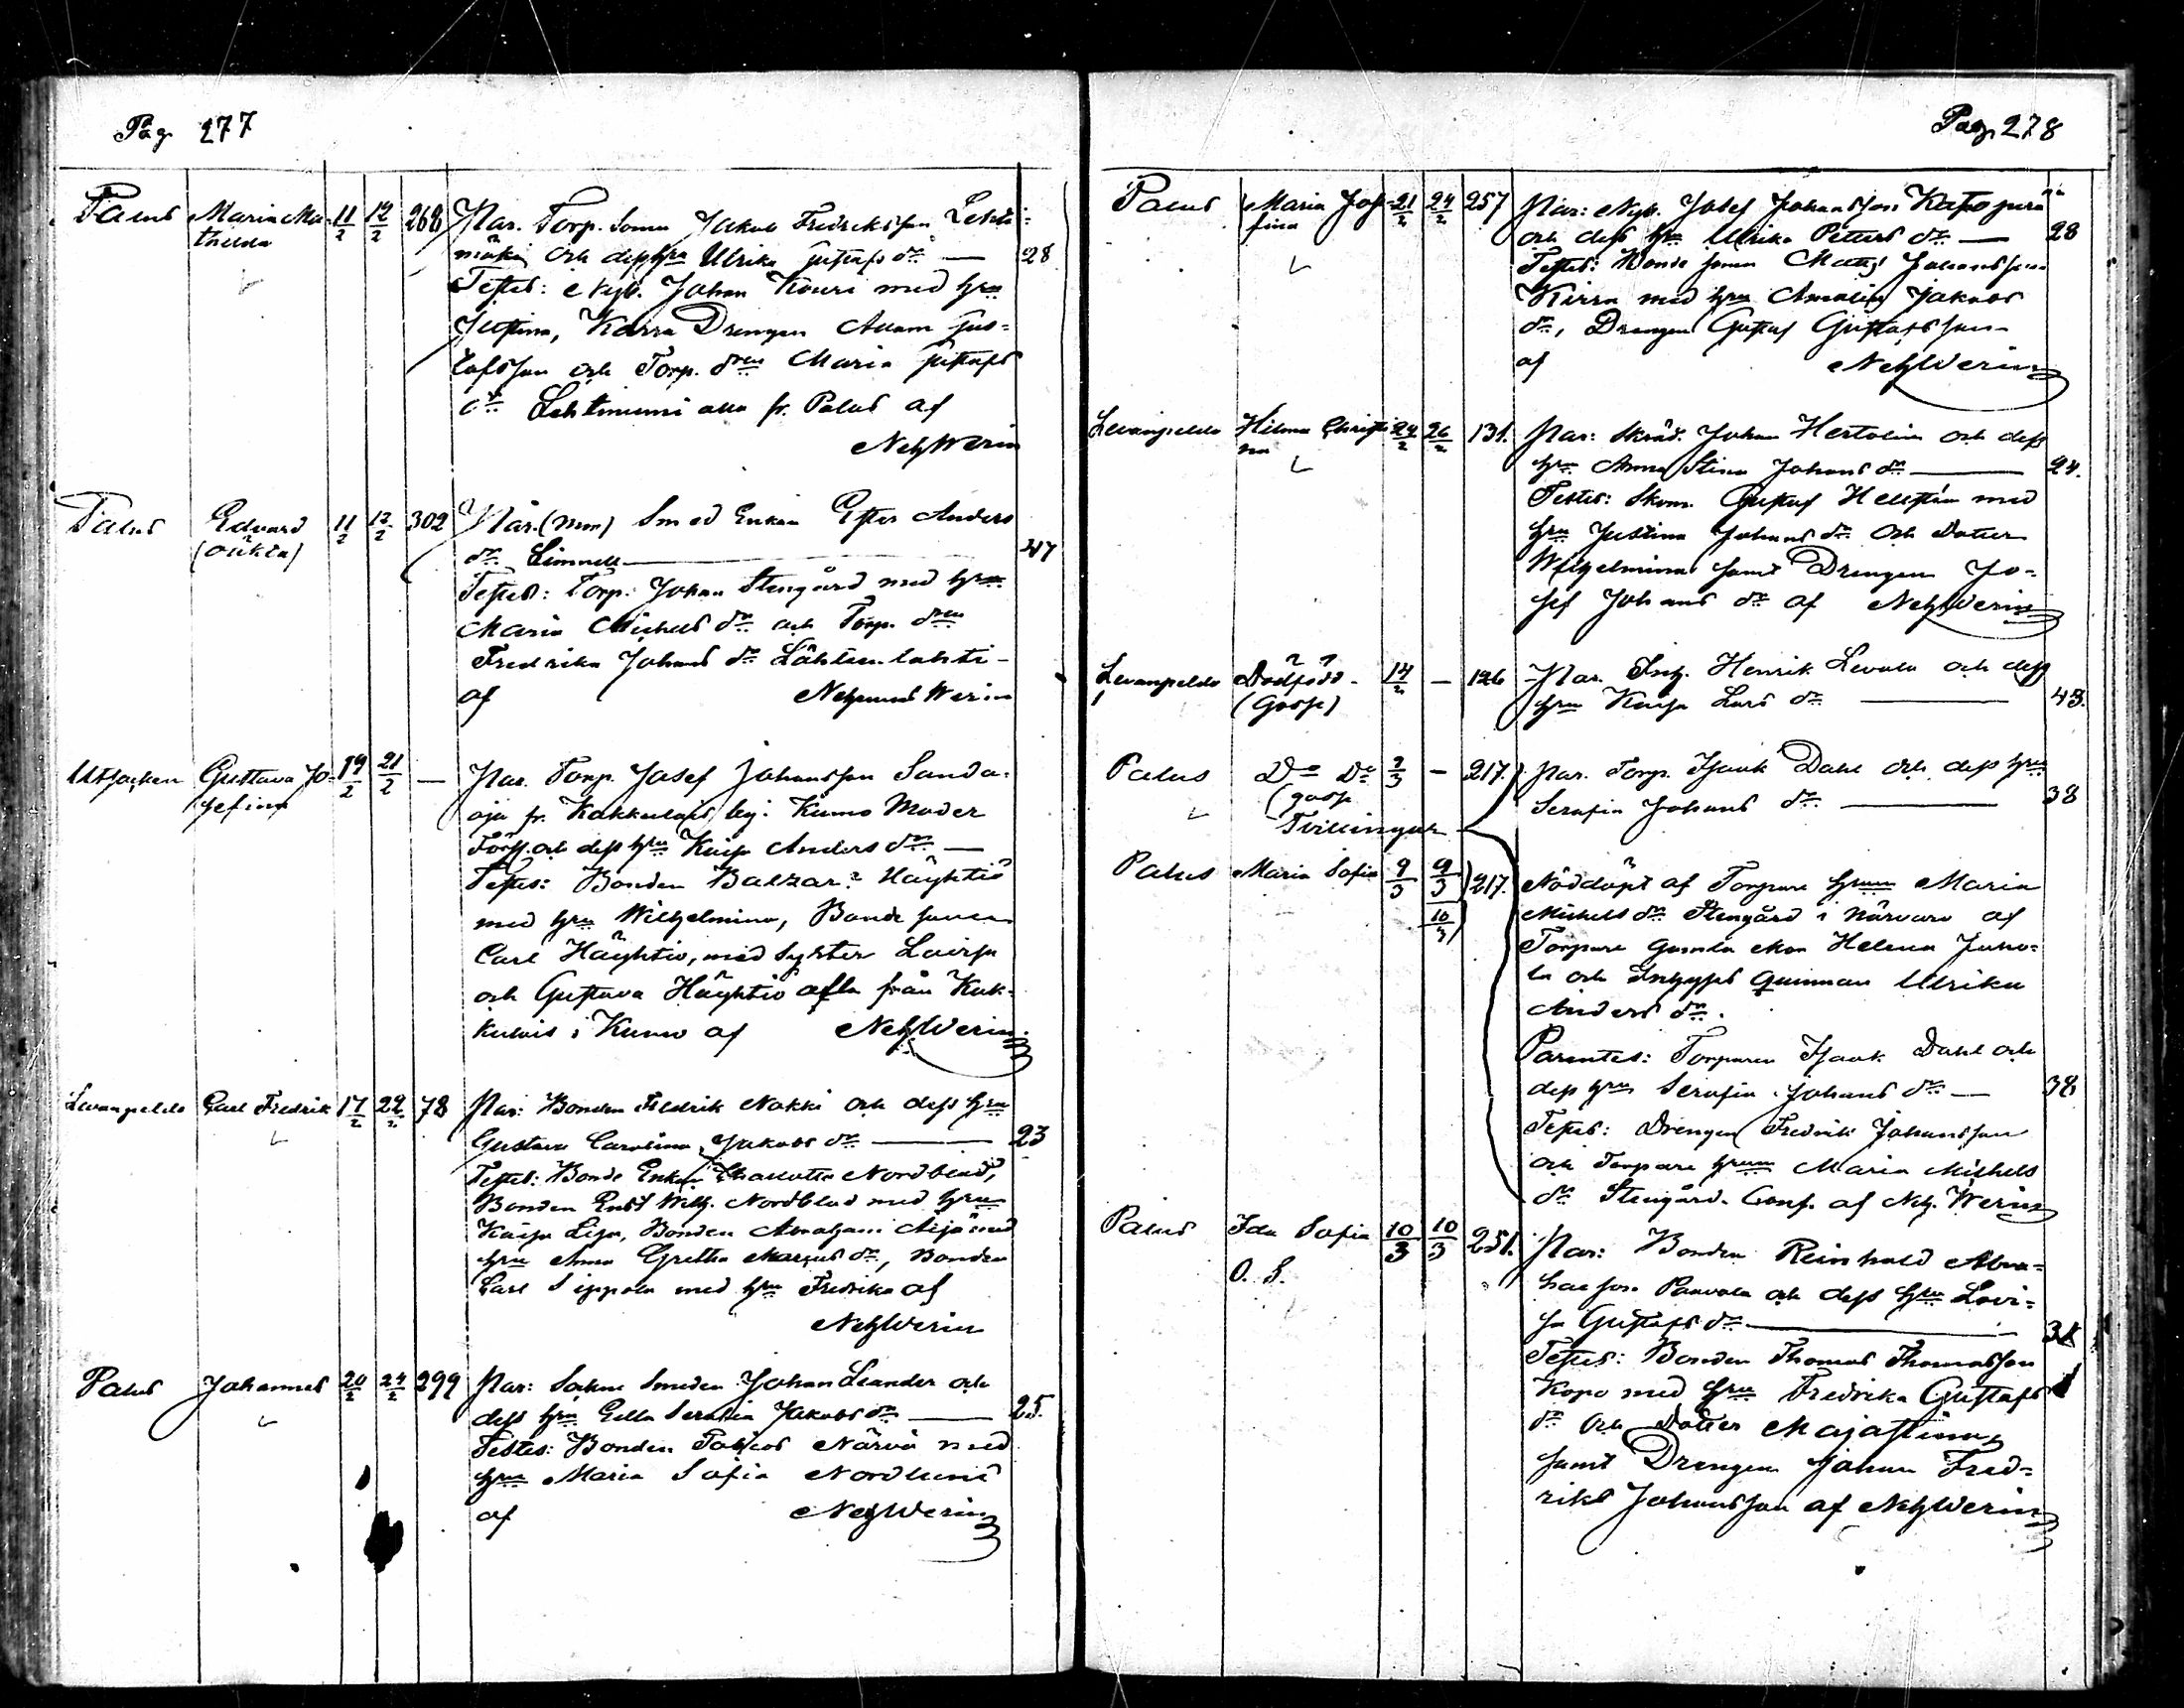 Pag 277
Palus Maria Ma- 11/2 12/2 268 Par. Torp. Sonen Jakob Fredriksson Lehti-
thilda mäki och dess hru Ulrika Gustafs dr — 28
Testes: Nyb. Johan Kouri med hru
Justina, Karra Drengen Adam Gus-
tafsson och Torp. dren Maria Gustafs
dr Lehtiniemi alla fr. Palus af
NehWerin
Palus Edvard 11/2 12/2 302 Par. (Mor) Smed Enkan Ester Anders
(oäkta) dr Limnell — 47
Testes: Torp. Johan Stengård med hru
Maria Michels dr och Torp. dren
Fredrika Johans dr Lähteenlahti
af Nehemias Werin
Utsocken Gustava Jo- 19/2 21/2 — Par. Torp. Josef Johansson Sanda-
sefina oja fr. Kakkulais by i Kumo Moder
Förs. och dess hru Kaisa Anders dr —
Testes: Bonden Balzar Häyhtiö
med hru Wilhelmina, Bonde sonen
Carl Häyhtiö, med Syster Lovisa
och Gustava Häyhtiö alla från Kak-
kulais i Kumo af NehWerin
Levanpelto Carl Fredrik 17/2 22/2 78 Par: Bonden Fredrik Nokki och dess hru
Gustava Carolina Jakobs dr — 23
Testes: Bonde Enkan Charlotta Nordblad,
Bonden Ernst Wilh. Nordblad med hru
Kaisa Lisa, Bonden Abraham Äijä med
hru Anna Gretha Marcus dr, Bonden
Carl Sippola med hru Fredrika af
NehWerin
Palus Johannes 20/2 24/2 299 Par: Socken Smeden Johan Leander och
dess hru Eella Serafia Jakobs dr — 25.
Testes: Bonden Närvä med
hru Maria Sofia Nordlund
af NehWerin
Pag. 278
Palus Maria Jose- 21/2 24/2 257 Par: Nyb. Josef Johansson
fina och dess hru Ulrika Petters dr — 28
Testes: Bonde sonen Matts Johansson
Kirra med hru Amalia Jakobs
dr, Drengen Gustaf Gustafsson
af NehWerin
Levanpelto Hilma Christi- 24/2 26/2 131. Par: Skräd. Johan Hertolin och dess
na hru Anna Stina Johans dr — 24.
Testes: Skom. Gustaf Hellstén med
hru Justina Johans dr och Dotter
Wilhelmina samt Drengen Jo-
sef Johans dr af NehWerin
Levanpelto Dödfödd 14/2 — 126 Par. Inh. Henrik Levola och dess
(Gosse) hru Kaisa Lars dr — 43.
Palus Do Do 9/3 — 217. Par. Torp. Isaak Dahl och dess hru
(gosse Serafia Johans dr — 38
Tvillingar
Palus Maria Sofia 9/3 9/3 217. Nöddöpt af Torpare hrun Maria
10/3 Michels dr Stengård i närvaro af
Torpare gamla mor Helena Juno-
la och Inhyses quinnan Ulrika
Anders dr.
Parentes: Torparen Isaak Dahl och
dess hru Serafia Johans dr — 38
Testes: Drengen Fredrik Johansson
och Torpare hrun Maria Michels
dr Stengård. Conf. af Neh. Werin
Palus Ida Sofia 10/3 10/3 251. Par: Bonden Reinhold Abra-
O. S. hamson Paavola och dess hru Lovi-
sa Gustafs dr — 31
Testes: Bonden Thomas Thomasson
Kopo med hru Fredrika Gustafs
dr och Dotter Majastina,
samt Drengen Johan Fred-
riks Johansson af NehWerin